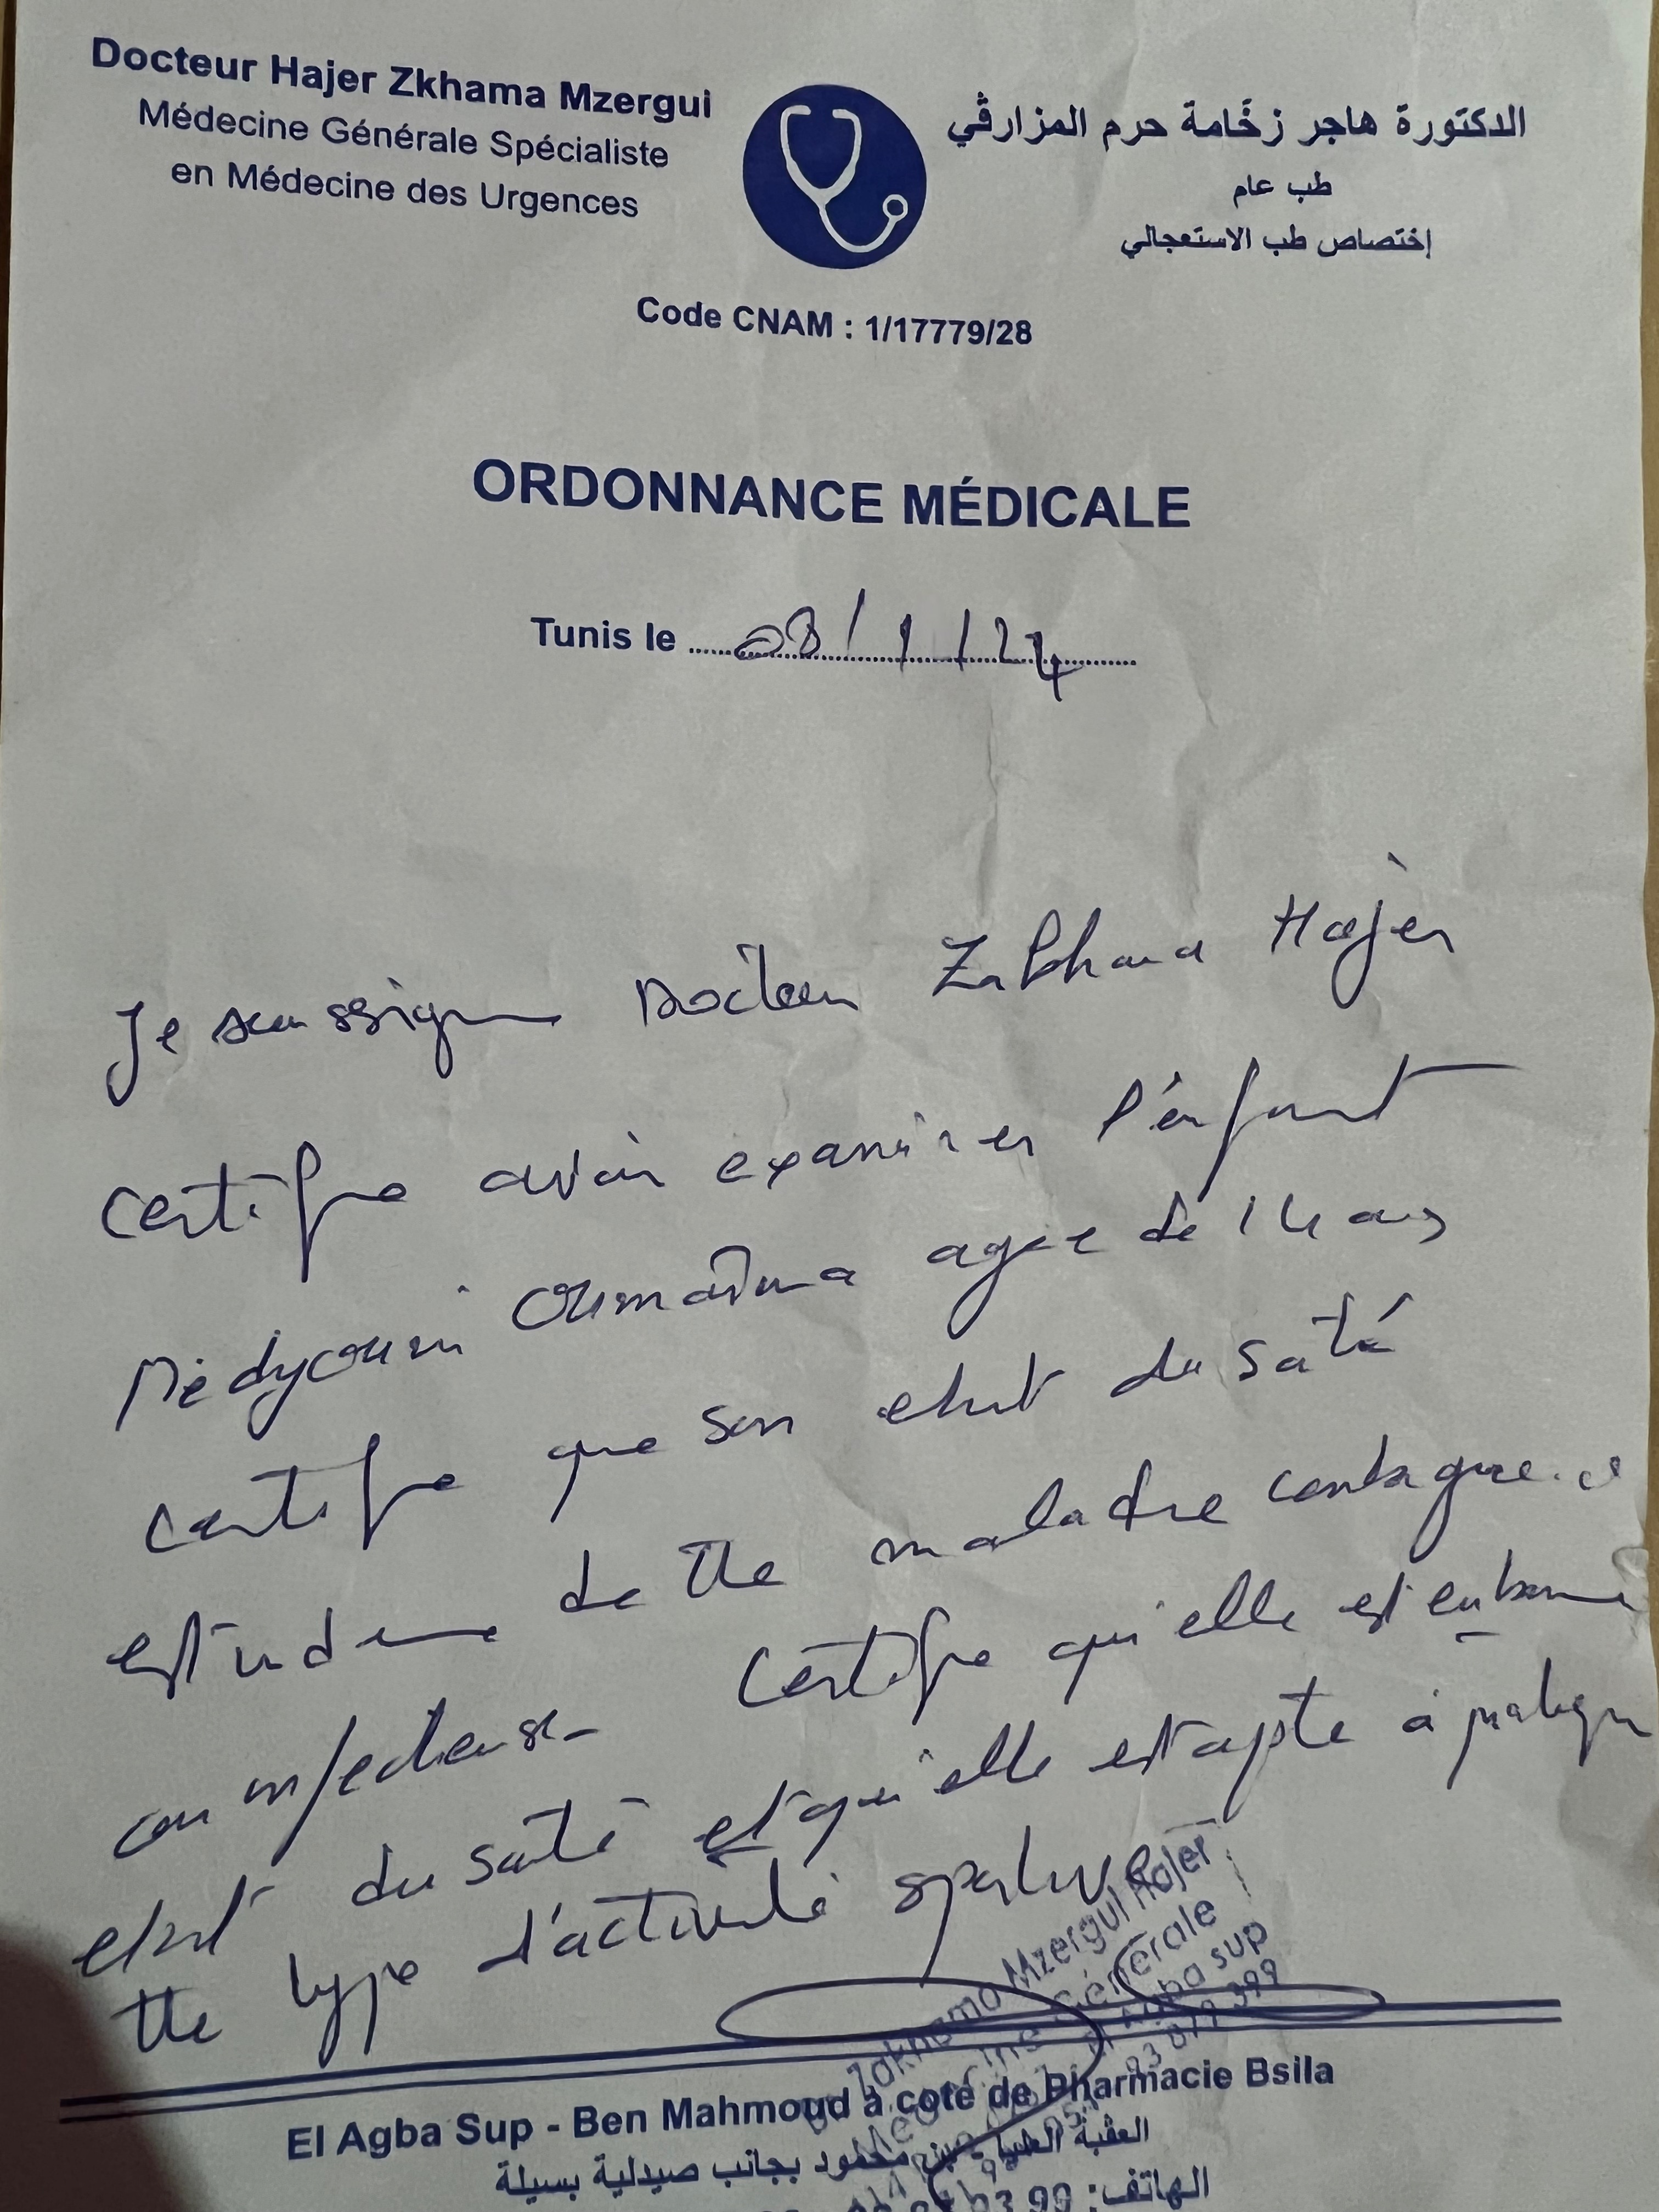 Docteur Hajer Zkhama Mzergui
Médecine Générale Spécialiste
en Médecine des Urgences
الدكتورة هاجر زخّامة حرم المزارڤي
طب عام
إختصاص طب الاستعجالي
Code CNAM : 1/17779/28
ORDONNANCE MÉDICALE
Tunis le 08/1/24
Je soussigne Docteur Zakhama Hajer
certifie avoir examiner l'enfant
Médycouni Oumaïma agée de 14 ans
certifie que son etat du saté
est indeme de tte maladie contagieuse
ou infectieuse certifie qu'elle est en bonne
etat du santé et qu'elle est apte à pratiquer
tte type d'activité sportive
Mzergui Hajer
Générale
El Agba sup
El Agba Sup - Ben Mahmoud à coté de Pharmacie Bsila
العڤبة العليا - بن محمود بجانب صيدلية بسيلة
الهاتف: